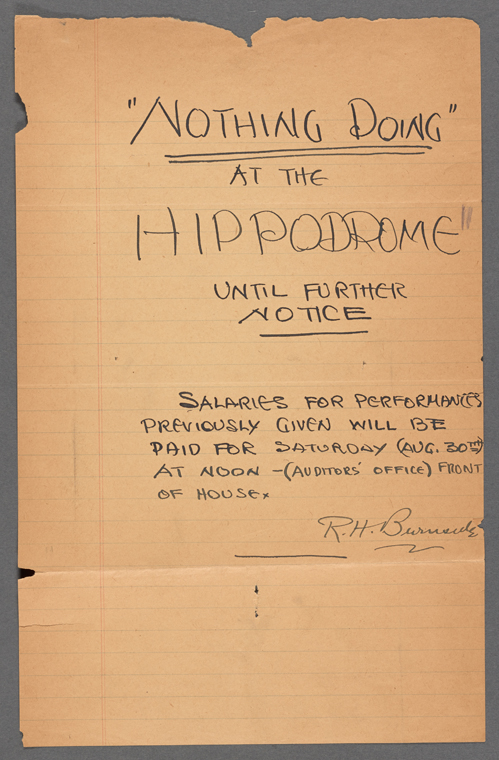 "NOTHING DOING"
AT THE
HIPPODROME"
UNTIL FURTHER
NOTICE
SALARIES FOR PERFORMANCES
PREVIOUSLY GIVEN WILL BE
PAID FOR SATURDAY (AUG. 30TH)
AT NOON -(AUDITORS' OFFICE) FRONT
OF HOUSE.
R.H. Burnside